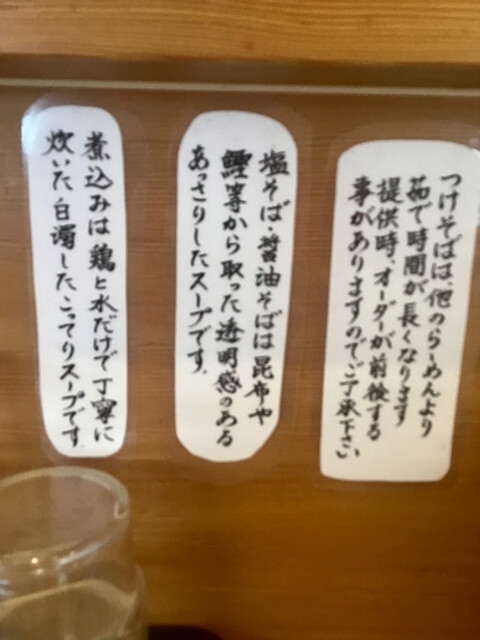 つけそばは、他のらーめんより
茹で時間が長くなります
提供時、オーダーが前後する
事がありますのでご了承下さい
塩そば・醤油そばは昆布や
鰹等から取った透明感のある
あっさりしたスープです。
煮込みは鶏と水だけで丁寧に
炊いた白濁したこってりスープです